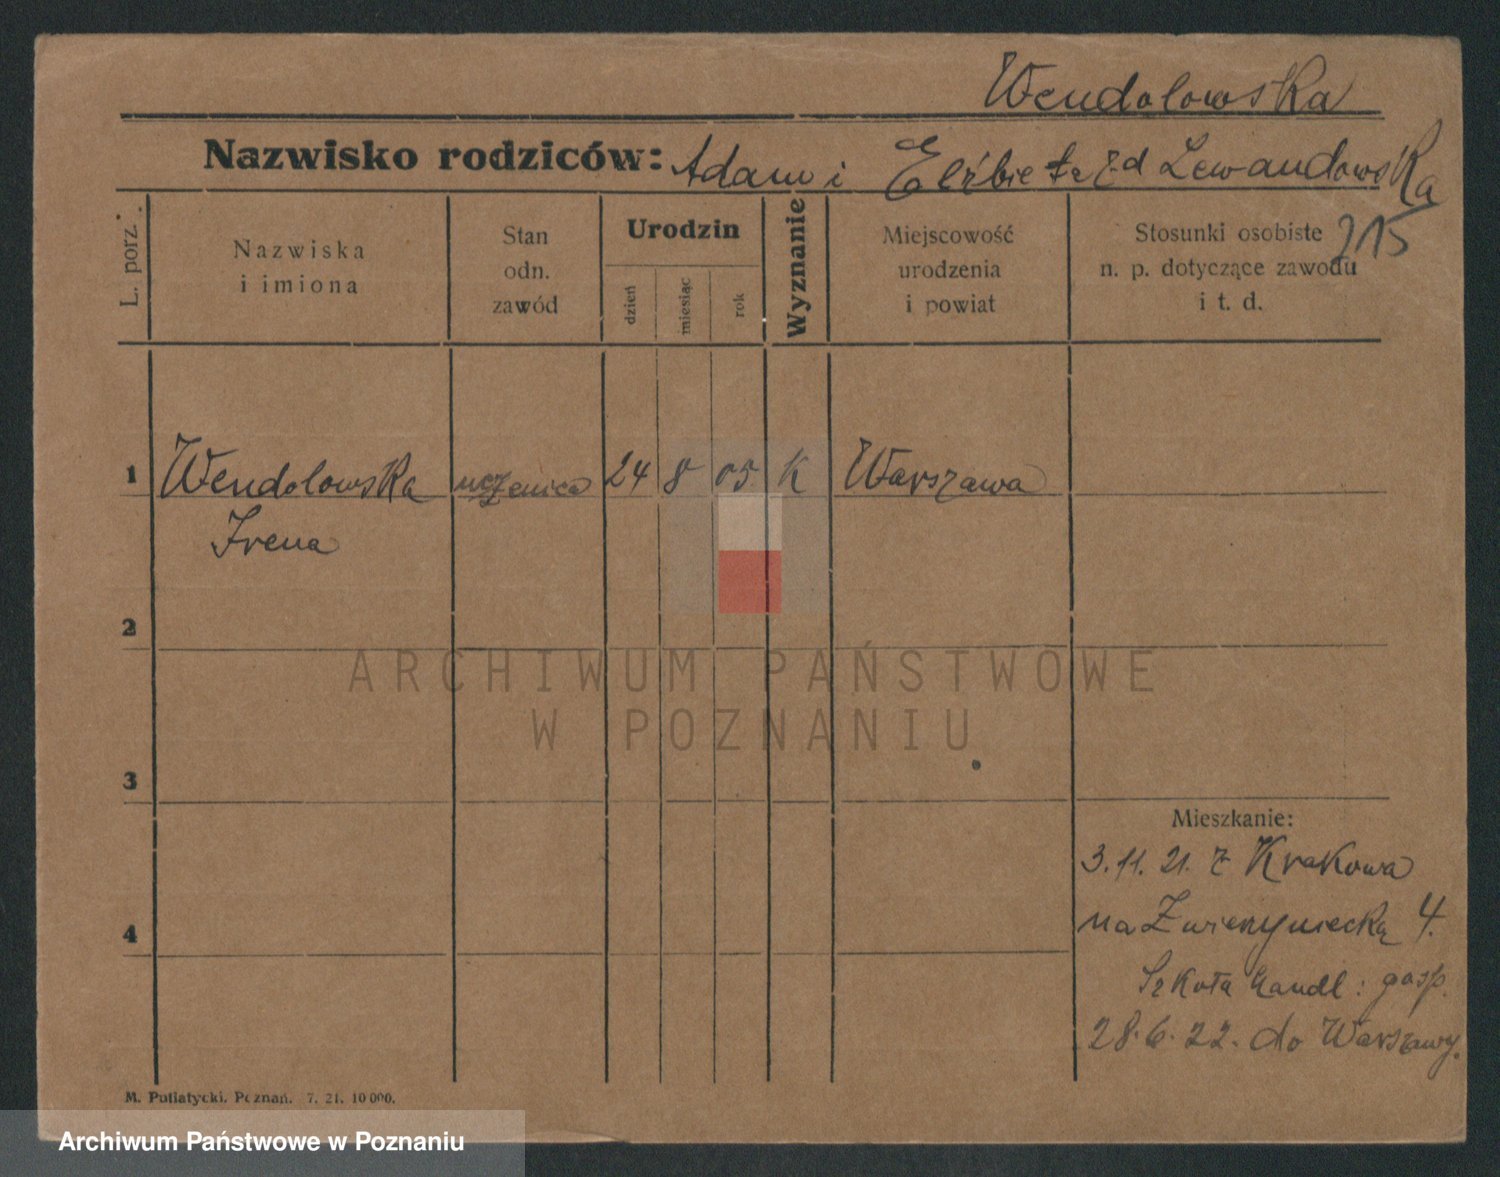 Wendolowska
Nazwisko rodziców: Adam i Elżbieta z d Lewandowska
215
L. porz.
Nazwiska i imiona
Stan odn. zawód
Urodzin
dzień
miesiąc
rok
Wyznanie
Miejscowość urodzenia i powiat
Stosunki osobiste n. p. dotyczące zawodu i t. d.
1 Wendolowska uczenica 24 8 05 K Warszawa
Irena
2
3
4
Mieszkanie:
3. 11. 21. z Krakowa
na Zwierzyniecką 4.
Szkoła handl: gosp.
28. 6. 22. do Warszawy.
M. Putiatycki. Poznań. 7. 21. 10 000.
ARCHIWUM PAŃSTWOWE
W POZNANIU
Archiwum Państwowe w Poznaniu